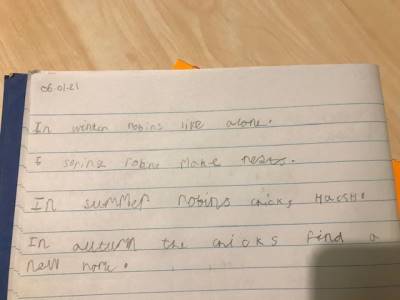 06.01.21
In winter robins like alone.
I spring robins make nests.
In summer robins chicks Hatch.
In autumn the chicks find a
new home.